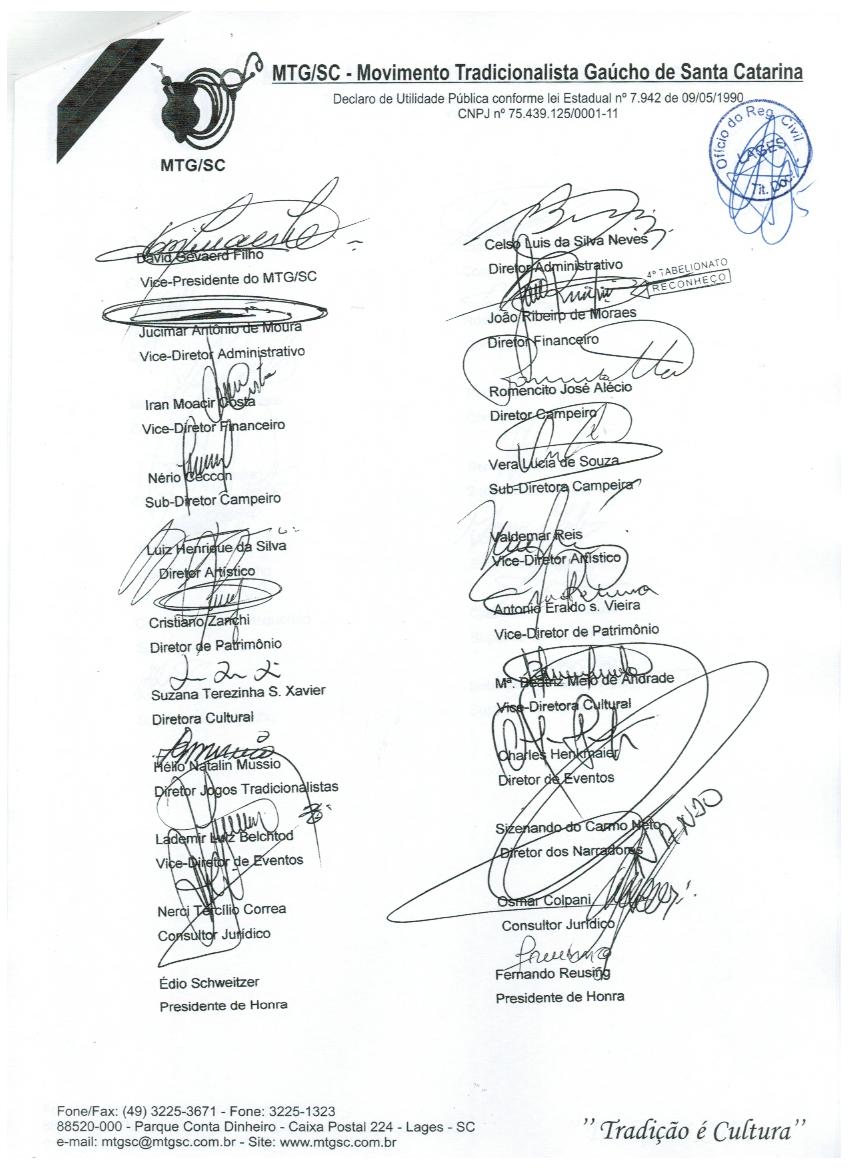 MTG/SC - Movimento Tradicionalista Gaúcho de Santa Catarina
Declaro de Utilidade Pública conforme lei Estadual nº 7.942 de 09/05/1990
CNPJ nº 75.439.125/0001-11
MTG/SC
Ofício do Reg. Civil
LAGES
Tit. Doc.
David Gevaerd Filho
Vice-Presidente do MTG/SC
Jucimar Antônio de Moura
Vice-Diretor Administrativo
Iran Moacir Costa
Vice-Diretor Financeiro
Nério Ceccon
Sub-Diretor Campeiro
Luiz Henrique da Silva
Diretor Artístico
Cristiano Zanchi
Diretor de Patrimônio
Suzana Terezinha S. Xavier
Diretora Cultural
Hélio Natalin Mussio
Diretor Jogos Tradicionalistas
Lademir Luiz Belchtod
Vice-Diretor de Eventos
Nerci Tercílio Correa
Consultor Jurídico
Édio Schweitzer
Presidente de Honra
Celso Luis da Silva Neves
Diretor Administrativo
4º TABELIONATO
RECONHEÇO
João Ribeiro de Moraes
Diretor Financeiro
Romencito José Alécio
Diretor Campeiro
Vera Lucia de Souza
Sub-Diretora Campeira
Valdemar Reis
Vice-Diretor Artístico
Antonio Eraldo s. Vieira
Vice-Diretor de Patrimônio
Mª. Beatriz Melo de Andrade
Vice-Diretora Cultural
Charles Henkmaier
Diretor de Eventos
Sizenando do Carmo Neto
Diretor dos Narradores
Osmar Colpani
Consultor Jurídico
Fernando Reusing
Presidente de Honra
Fone/Fax: (49) 3225-3671 - Fone: 3225-1323
88520-000 - Parque Conta Dinheiro - Caixa Postal 224 - Lages - SC
e-mail: mtgsc@mtgsc.com.br - Site: www.mtgsc.com.br
" Tradição é Cultura"